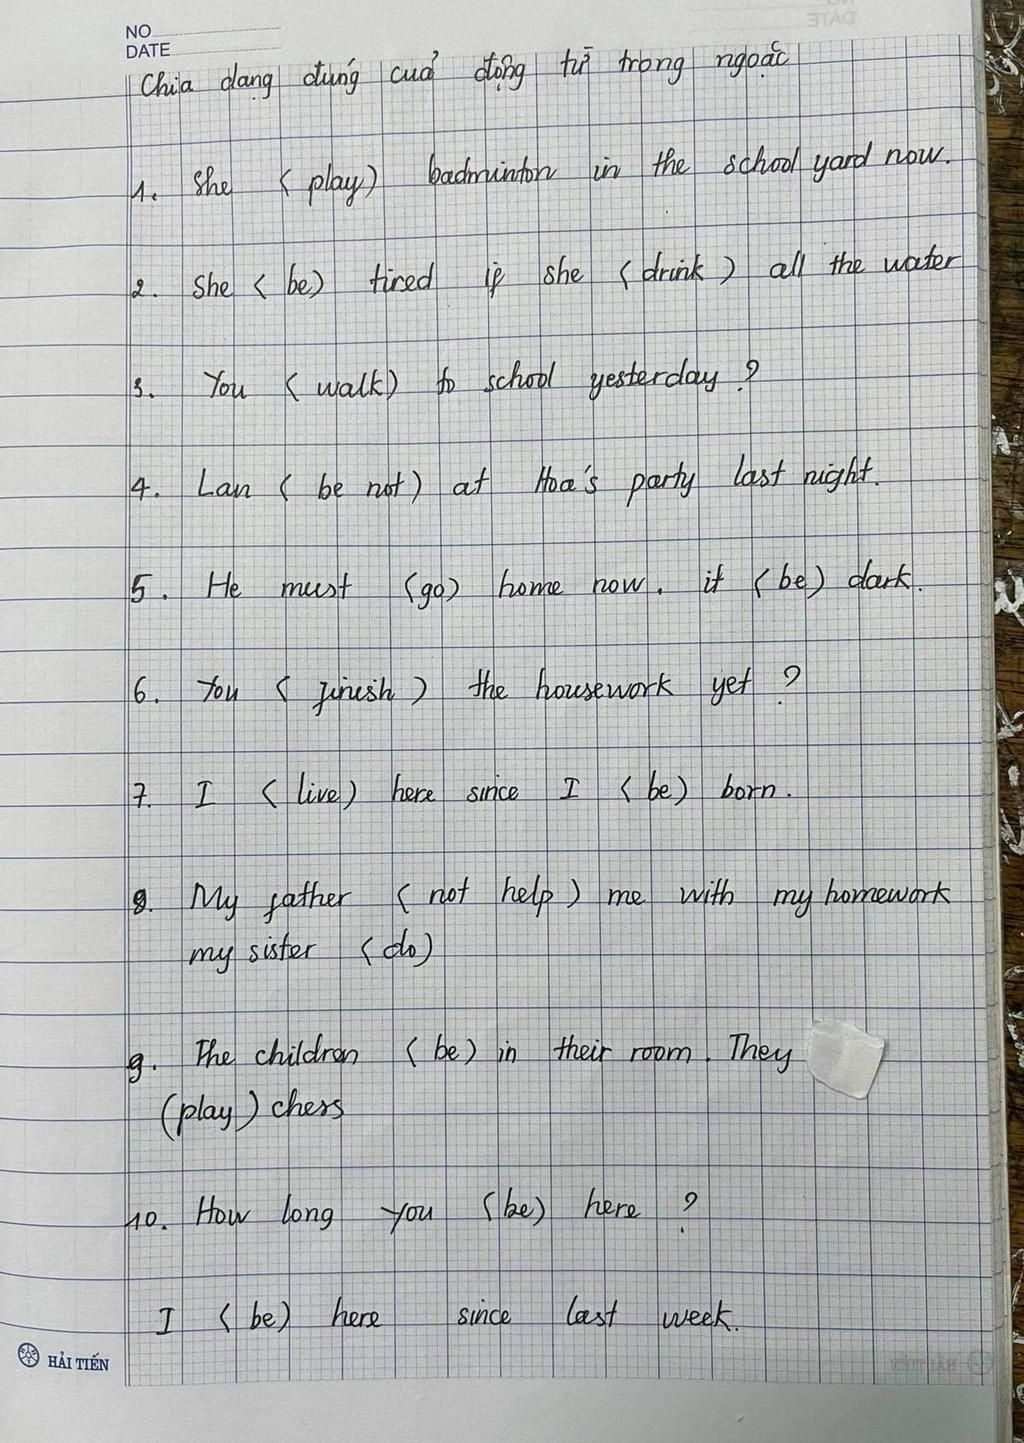 NO
DATE
Chia dạng đúng của động từ trong ngoặc
1. She (play) badminton in the school yard now.
2. She (be) tired if she (drink) all the water
3. You (walk) to school yesterday ?
4. Lan (be not) at Hoa's party last night.
5. He must (go) home now. it (be) dark.
6. You (finish) the housework yet ?
7. I (live) here since I (be) born.
8. My father (not help) me with my homework
my sister (do)
9. The children (be) in their room. They
(play) chess
10. How long you (be) here ?
I (be) here since last week.
HẢI TIẾN